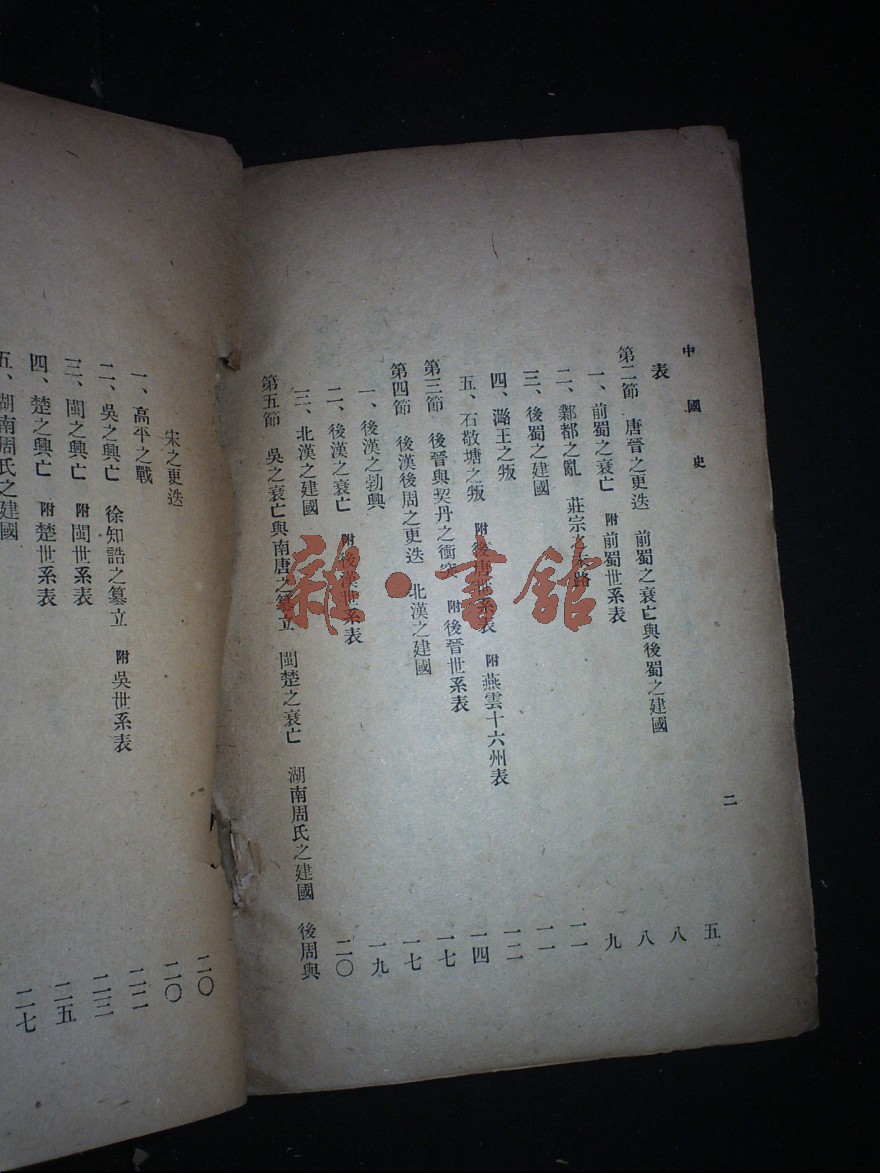 中國史
二
表 五
第二節 唐晉之更迭 前蜀之衰亡與後蜀之建國 八
一、前蜀之衰亡 附前蜀世系表 八
二、鄴都之亂 莊宗之末路 九
三、後蜀之建國 一一
四、潞王之叛 一一
五、石敬塘之叛 附後唐世系表 附燕雲十六州表 一二
第三節 後晉與契丹之衝突 附後晉世系表 一四
第四節 後漢後周之更迭 北漢之建國 一七
一、後漢之勃興 一七
二、後漢之衰亡 附後漢世系表 一九
三、北漢之建國 二〇
第五節 吳之衰亡與南唐之篡立 閩楚之衰亡 湖南周氏之建國 後周與
宋之更迭 二〇
一、高平之戰 二〇
二、吳之興亡 徐知誥之篡立 附吳世系表 二二
三、閩之興亡 附閩世系表 二三
四、楚之興亡 附楚世系表 二五
五、湖南周氏之建國 二七
雜·書館